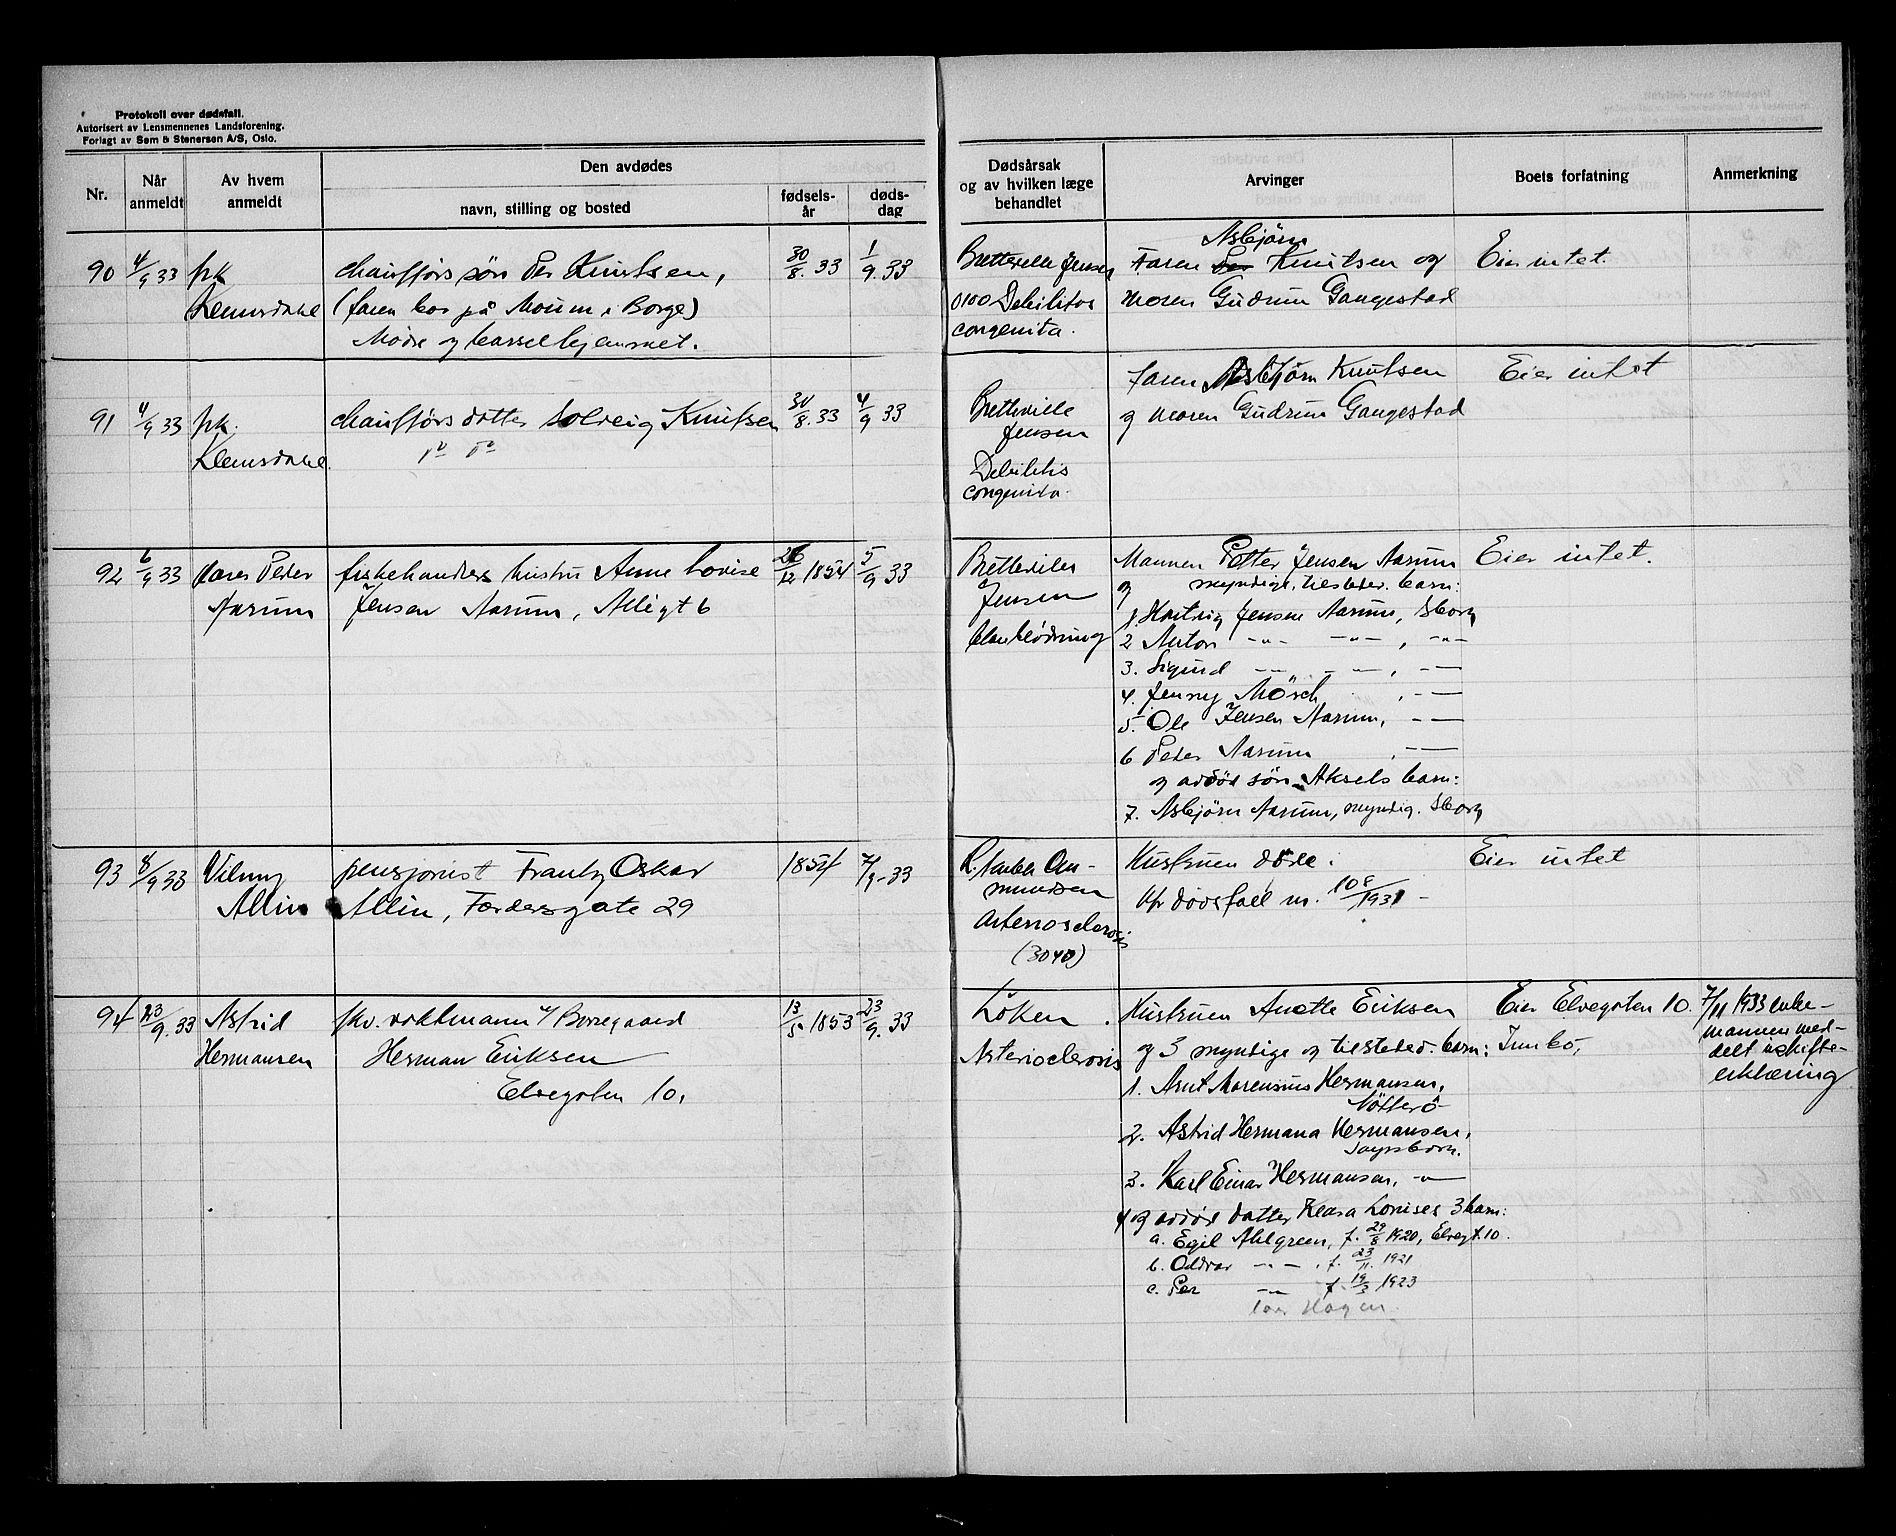 Protokoll over dødsfall.
Autorisert av Lensmennenes Landsforening.
Forlagt av Sem & Stenersen A/S, Oslo.
Nr.
Når anmeldt
Av hvem anmeldt
Den avdødes
navn, stilling og bosted
fødsels-år
døds-dag
Dødsårsak og av hvilken læge behandlet
Arvinger
Boets forfatning
Anmerkning
90 4/9 33 frk Klemsdahl
chaufførs søn Per Knutsen,
(faren bor på Moum i Borge)
Mødre og barselhjemmet.
30/8. 33 1/9. 33
Bretteville Jensen
0100 Debilitas
congenita.
Asbjørn
Faren Per Knutsen og
moren Gudrun Gangestad
Eier intet.
91 4/9 33 frk. Klemsdahl.
chaufførs datter Solveig Knutsen
do do
30/8. 33 4/9 33
Bretteville
Jensen
Debilitas
congenita.
faren Asbjørn Knutsen
og moren Gudrun Gangestad
Eier intet
92 6/9 33 Peder Aarum
fiskehandlers hustru Anne Lovise
Jensen Aarum, Alleygt 6
26/12 1854 5/9 33
Bretteville
Jensen
Mannen Petter Jensen Aarum
og myndige, tilstedev. barn:
1. Hartvig Jensen Aarum, Sborg
2 Anton -"- -"-, -"-
3. Sigurd -"- -"-, -"-
4. Jenny Mösch , -"-
5. Ole Jensen Aarum, -"-
6 Peder Aarum , -"-
og avdød søn Aksels barn:
7. Asbjørn Aarum, myndig. Sborg
Eier intet.
93 8/9 33 Vilmy Allin
pensjonist Frantz Oskar
Allin, Tordersgate 29
1854 7/9 - 33
Amundsen
Arteriosclerosis
(3040)
Hustruen død:
kfr dødsfall nr. 108/1931 -
Eier intet
94 23/9. 33 Astrid Hermansen
fhv. voktmann v/ Borregaard
Herman Eriksen
Elvegaten 10.
13/5 1853 23/9. 33
Løken.
Arteriosclerosis
Hustruen Anette Eriksen
og 3 myndige og tilstedev. barn:
1. Arnt Marensius Hermansen,
Nötterö
2. Astrid Hermana Hermansen,
Sarpsborg.
3. Karl Einar Hermansen, -"-
4 og avdød datter Klara Lovises 3 barn:
a. Egil Ahlgreen, f. 29/8 1920, Elvegt. 10.
b. Oddvar -"-, f. 23/11. 1921
c. Per -"- f. 19/3 1923
Hagen.
Eier Elvegaten 10.
Innbo.
7/11 1933 enke-
mannen med-
delt uskifte-
erklæring